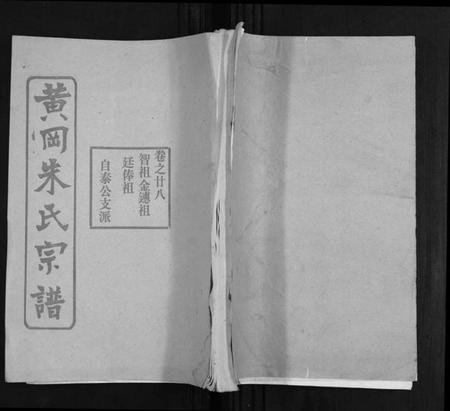 黄冈朱氏宗譜
卷之廿八
智祖金鏸祖
廷俸祖
自泰公支派